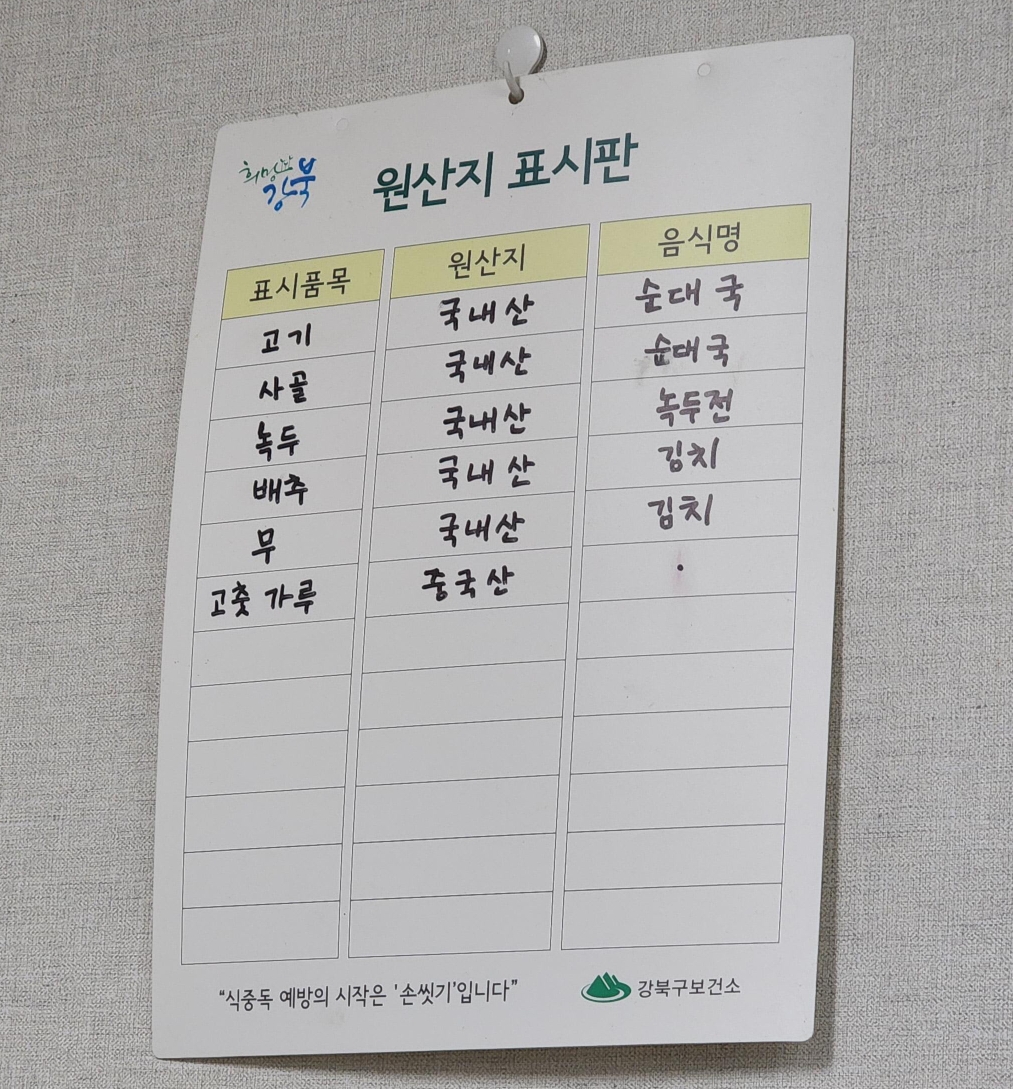 희망찬
강북
원산지 표시판
표시품목 원산지 음식명
고기 국내산 순대국
사골 국내산 순대국
녹두 국내산 녹두전
배추 국내산 김치
무 국내산 김치
고춧가루 중국산
"식중독 예방의 시작은 '손씻기'입니다"
강북구보건소